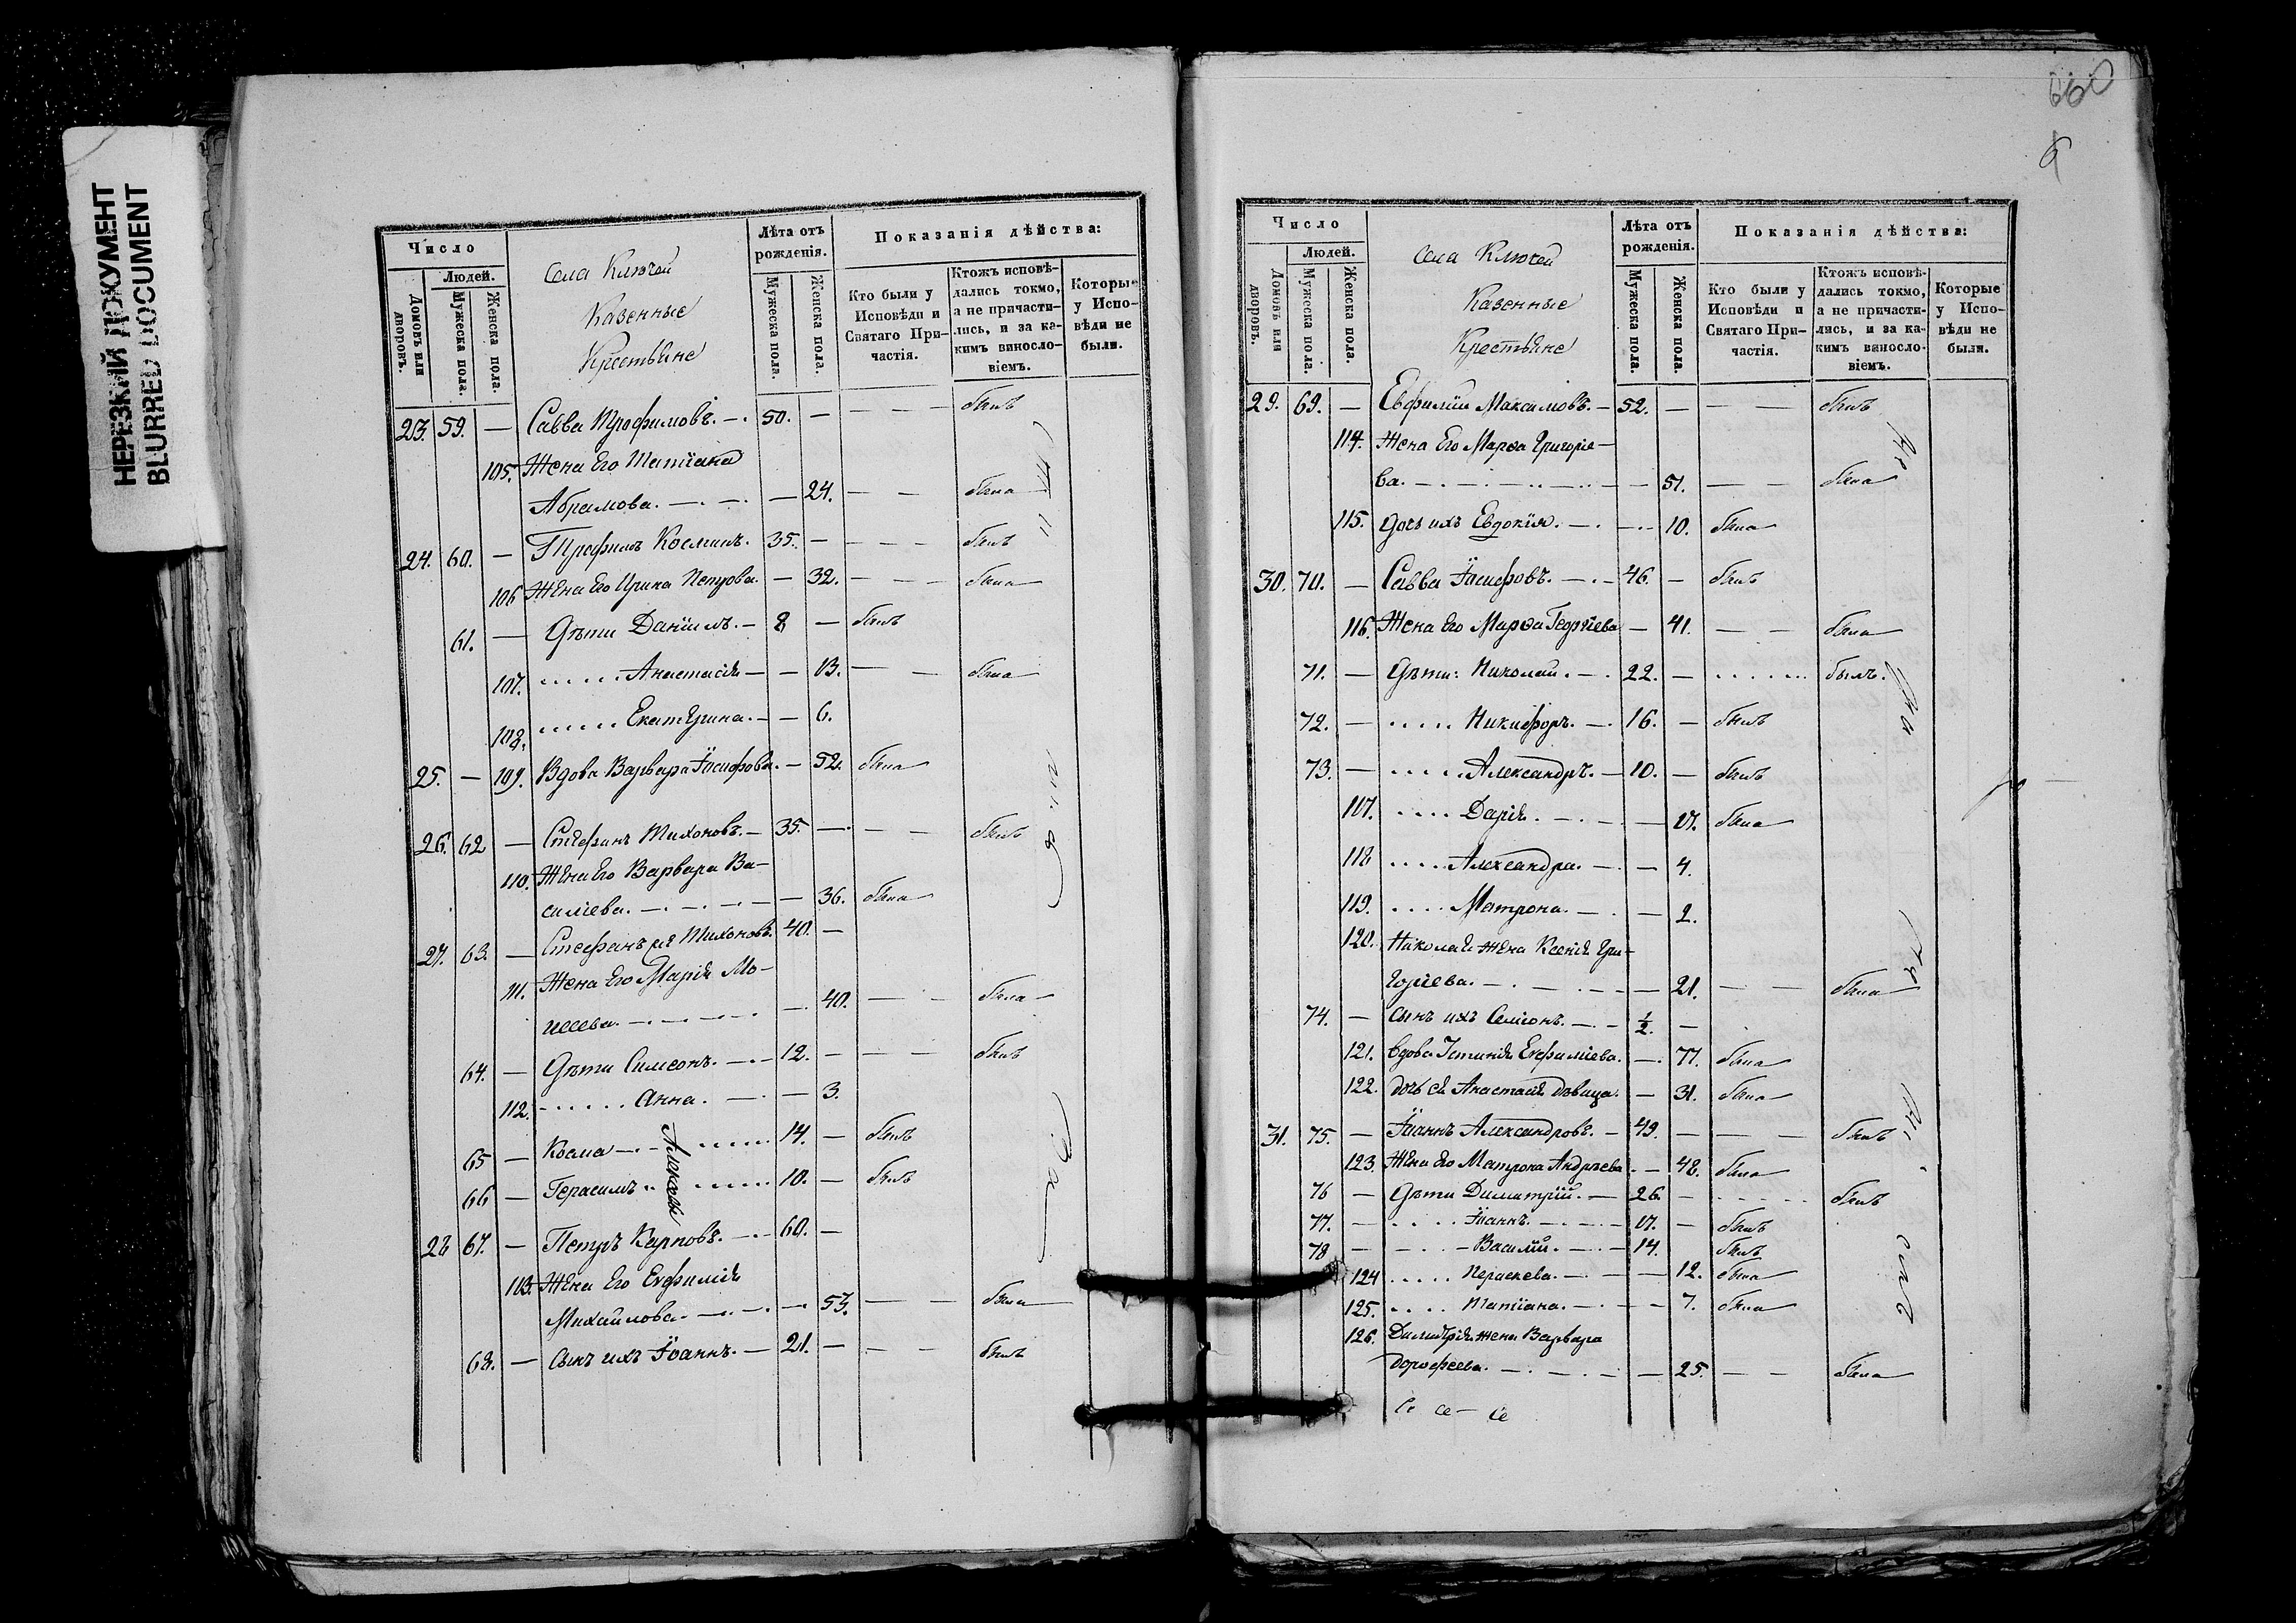 НЕРЕЗКИЙ ДОКУМЕНТ
BLURRED DOCUMENT
Число
Людей.
Домовъ или дворовъ.
Мужеска пола.
Женска пола.
Села Ключей
Казенные
Крестьяне
Лѣта отъ рожденія.
Мужеска пола.
Женска пола.
Показанія дѣйства:
Кто были у Исповѣди и Святаго Причастія.
Ктожъ исповѣдались токмо, а не причастились, и за какимъ винословіемъ.
Которые у Исповѣди не были.
23. 59. — Савва Трофимовъ. — 50. — — — былъ
105. Жена Его Татіана
Абрамова. — — — 24. — — была
24. 60. — Трофимъ Косминъ. 35. — — — былъ
106 Жена Его Ирина Петрова. — 32. — — была
61. — Дѣти Даніилъ. — 8 — былъ
107. ...... Анастасія — — 13. — — была
108. ...... Екатерина. — — 6.
25. — 109. Вдова Варвара Іосифова. — 52. была
26. 62 — Стефанъ Тихоновъ. — 35. — — — былъ
110. Жена Его Варвара Ва-
силіева. — — — — 36. была
27. 63. — Стефанъ же Тихоновъ. 40. —
111. Жена Его Марія Мо-
исеева. — — — — 40. — — была
64. — Дѣти Симеонъ. — 12. — — — былъ
112. ...... Анна. — — 3.
65 — Косма — ...... 14. — былъ
Алексѣевы
66 — Герасимъ ...... 10. — былъ
28 67. — Петръ Карповъ. — 60. —
113. Жена Его Евфимія
Михайлова. — — — 53. — — была
68. — Сынъ ихъ Іоаннъ. — 21. — — — былъ
660
6
Число
Людей.
Домовъ или дворовъ.
Мужеска пола.
Женска пола.
Села Ключей
Казенные
Крестьяне
Лѣта отъ рожденія.
Мужеска пола.
Женска пола.
Показанія дѣйства:
Кто были у Исповѣди и Святаго Причастія.
Ктожъ исповѣдались токмо, а не причастились, и за какимъ винословіемъ.
Которые у Исповѣди не были.
29. 69. — Евфимій Максимовъ. — 52. — — — былъ
114. Жена Его Марѳа Григорiе-
ва. — — — — 51. — — была
115. Дочь ихъ Евдокія. — — 10. была
30. 70. — Савва Іосифовъ. — 46. — былъ
116. Жена Его Марѳа Георгіева — 41. — — была
71. — Дѣти: Николай. — 22. — ...... былъ.
72. — ..... Никифоръ. — 16. — былъ
73. — ..... Александръ. — 10. — былъ
117. .... Дарія. — — 17. была
118 ..... Александра. — — 4.
119. .... Матрона. — — 2.
120. Николая жена Ксенія Гри-
горіева. — — — 21. — — была
74. — Сынъ ихъ Симеонъ. — 1/2. —
121. Вдова Устинія Евфиміева. — 77. была
122. дочь Ея Анастасія дѣвица. — 31. была
31. 75. — Іоаннъ Александровъ. — 49. — — — былъ
123. Жена Его Матрона Андреева. — 48. была
76 — Дѣти Димитрій. — 26. — ..... былъ
77. — .... Іоаннъ. — — 17. — былъ
78 — — Василій. — — 14. былъ
124 ..... Параскева. — — 12. была
125. .... Татіана. — — 7. была
126. Димитрія жена Варвара
Дорофеева. — — — 25. — — была